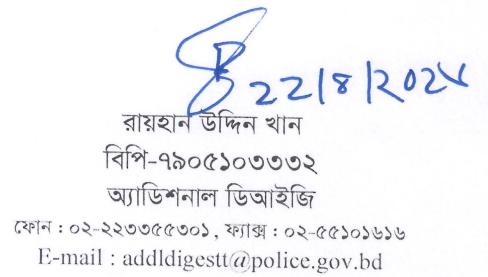 22/8/2024
রায়হান উদ্দিন খান
বিপি-৭৯০৫১০৩৩৩২
অ্যাডিশনাল ডিআইজি
ফোন : ০২-২২৩৩৫৫৩০১, ফ্যাক্স : ০২-৫৫১০১৬১৬
E-mail : addldigestt@police.gov.bd